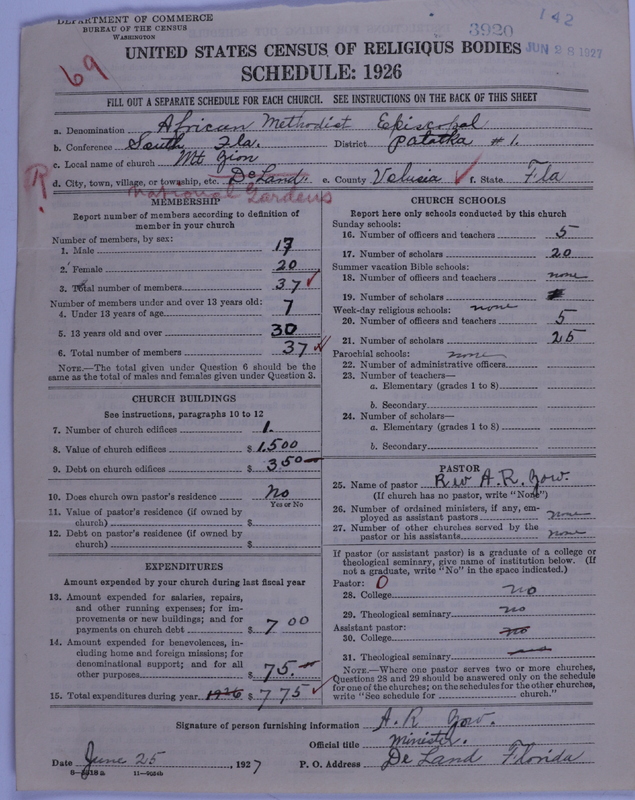 DEPARTMENT OF COMMERCE
BUREAU OF THE CENSUS
WASHINGTON
142
3920
JUN 28 1927
69
UNITED STATES CENSUS OF RELIGIOUS BODIES
SCHEDULE: 1926
FILL OUT A SEPARATE SCHEDULE FOR EACH CHURCH. SEE INSTRUCTIONS ON THE BACK OF THIS SHEET
a. Denomination African Methodist Episcopal
b. Conference South Fla. District Palatka #1.
c. Local name of church Mt Zion
R d. City, town, village, or township, etc. DeLand. e. County Volusia f. State Fla
National Gardens
MEMBERSHIP
Report number of members according to definition of member in your church
Number of members, by sex:
1. Male 17
2. Female 20
3. Total number of members 37
Number of members under and over 13 years old:
4. Under 13 years of age 7
5. 13 years old and over 30
6. Total number of members 37
NOTE.—The total given under Question 6 should be the same as the total of males and females given under Question 3.
CHURCH BUILDINGS
See instructions, paragraphs 10 to 12
7. Number of church edifices 1.
8. Value of church edifices $ 1,500
9. Debt on church edifices $ 350
10. Does church own pastor's residence No
Yes or No
11. Value of pastor's residence (if owned by church) $
12. Debt on pastor's residence (if owned by church) $
EXPENDITURES
Amount expended by your church during last fiscal year
13. Amount expended for salaries, repairs, and other running expenses; for improvements or new buildings; and for payments on church debt $ 7 00
14. Amount expended for benevolences, including home and foreign missions; for denominational support; and for all other purposes $ 75.
15. Total expenditures during year 1926 $ 775
CHURCH SCHOOLS
Report here only schools conducted by this church
Sunday schools:
16. Number of officers and teachers 5
17. Number of scholars 20
Summer vacation Bible schools:
18. Number of officers and teachers none
19. Number of scholars
Week-day religious schools: none
20. Number of officers and teachers 5
21. Number of scholars 25
Parochial schools: none
22. Number of administrative officers
23. Number of teachers—
a. Elementary (grades 1 to 8)
b. Secondary
24. Number of scholars—
a. Elementary (grades 1 to 8)
b. Secondary
PASTOR
25. Name of pastor Rev A.R. Gow.
(If church has no pastor, write "None")
26. Number of ordained ministers, if any, employed as assistant pastors none
27. Number of other churches served by the pastor or his assistants none
If pastor (or assistant pastor) is a graduate of a college or theological seminary, give name of institution below. (If not a graduate, write "No" in the space indicated.)
Pastor: 0
28. College no
29. Theological seminary no
Assistant pastor:
30. College no
31. Theological seminary
NOTE.—Where one pastor serves two or more churches, Questions 28 and 29 should be answered only on the schedule for one of the churches; on the schedules for the other churches, write "See schedule for church."
Signature of person furnishing information A. R Gow.
Official title Minister.
Date June 25, 1927 P. O. Address De Land Florida